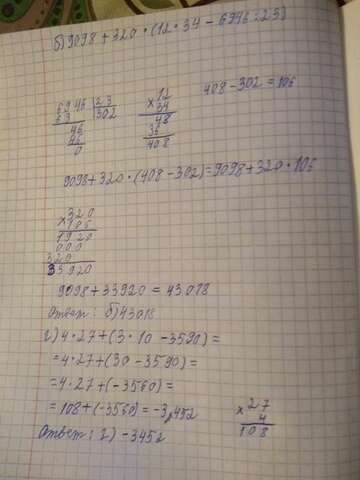 б) 9098 + 320 · (12 · 34 − 6946 : 23)
6946 | 23
69 302
46
46
0
× 12
34
48
36
408
408 − 302 = 106
9098 + 320 · (408 − 302) = 9098 + 320 · 106
× 320
106
1920
000
320
33920
9098 + 33920 = 43018
Ответ: б) 43018
г) 4 · 27 + (3 · 10 − 3590) =
= 4 · 27 + (30 − 3590) =
= 4 · 27 + (−3560) =
= 108 + (−3560) = −3452
× 27
4
108
Ответ: г) −3452